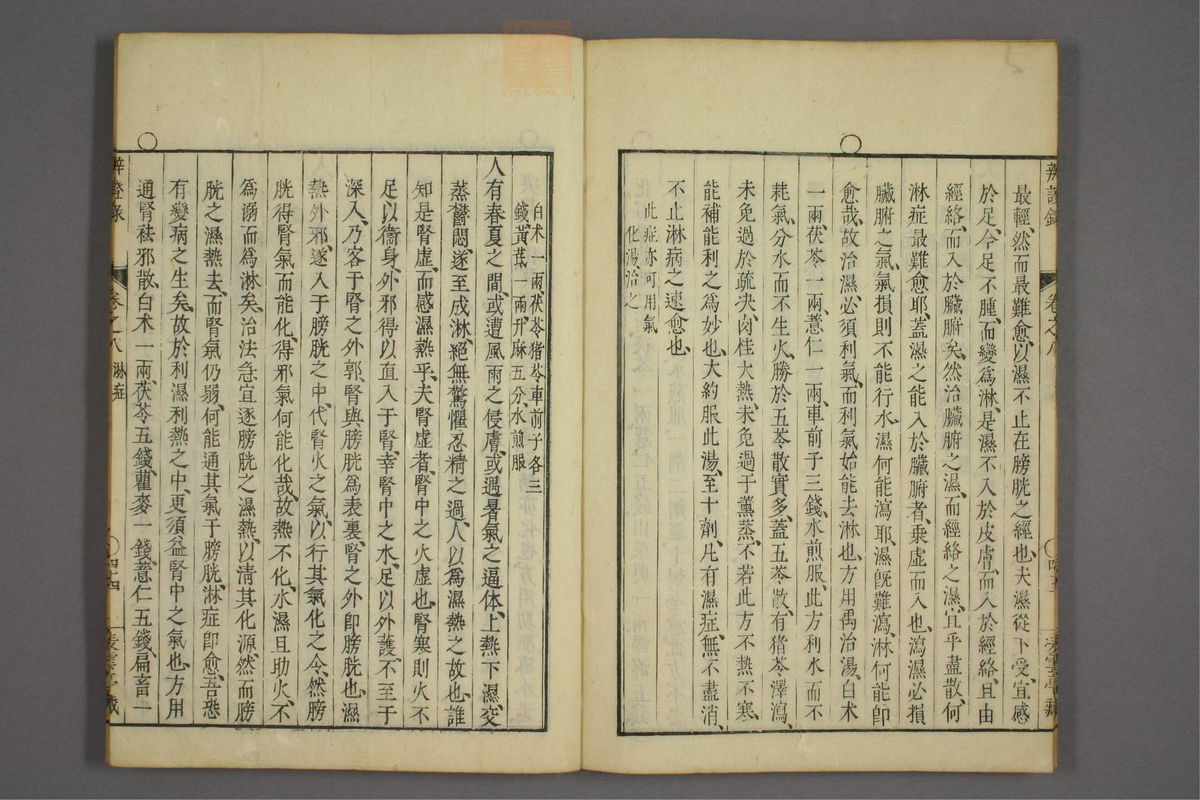 辨證錄
卷之八
最輕然而最難愈以濕不止在膀胱之經也夫濕從下受宜感
於足今足不腫而變爲淋是濕不入於皮膚而入於經絡且由
經絡而入於臟腑矣然治臟腑之濕而經絡之濕宜乎盡散何
淋症最難愈耶蓋濕之能入於臟腑者乘虛而入也瀉濕必損
臟腑之氣氣損則不能行水濕何能瀉耶濕旣難瀉淋何能卽
愈哉故治濕必須利氣而利氣始能去淋也方用禹治湯白术
一兩茯苓一兩薏仁一兩車前子三錢水煎服此方利水而不
耗氣分水而不生火勝於五苓散實多蓋五苓散有猪苓澤瀉
未免過於疏决肉桂大熱未免過于薰蒸不若此方不熱不寒
能補能利之爲妙也大約服此湯至十劑凡有濕症無不盡消
不止淋病之速愈也
此症亦可用氣
化湯治之
白术一兩茯苓猪苓車前子各三
錢黃芪一兩升麻五分水煎服
人有春夏之間或遭風雨之侵膚或遇暑氣之逼体上熱下濕交
蒸鬱悶遂至成淋絕無驚懼忍精之過人以爲濕熱之故也誰
知是腎虛而感濕熱乎夫腎虛者腎中之火虛也腎寒則火不
足以衞身外邪得以直入于腎幸腎中之水足以外護不至于
深入乃客于腎之外郭腎與膀胱爲表裏腎之外卽膀胱也濕
熱外邪遂入于膀胱之中代腎火之氣以行其氣化之令然膀
胱得腎氣而能化得邪氣何能化哉故熱不化水濕且助火不
爲溺而爲淋矣治法急宜逐膀胱之濕熱以淸其化源然而膀
胱之濕熱去而腎氣仍弱何能通其氣于膀胱淋症卽愈吾恐
有變病之生矣故於利濕利熱之中更須益腎中之氣也方用
通腎祛邪散白术一兩茯苓五錢瞿麥一錢薏仁五錢扁畜一
辨證錄
卷之八
淋症
四十四